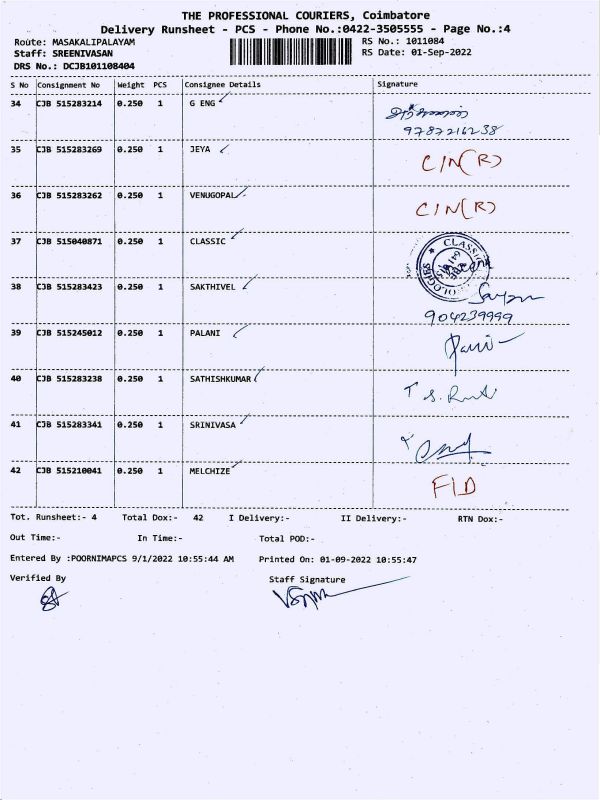 THE PROFESSIONAL COURIERS, Coimbatore
Delivery Runsheet - PCS - Phone No.:0422-3505555 - Page No.:4
Route: MASAKALIPALAYAM RS No.: 1011084
Staff: SREENIVASAN RS Date: 01-Sep-2022
DRS No.: DCJB101108404
S No Consignment No Weight PCS Consignee Details Signature
34 CJB 515283214 0.250 1 G ENG
9787216238
35 CJB 515283269 0.250 1 JEYA CIN(R)
36 CJB 515283262 0.250 1 VENUGOPAL CIN(R)
37 CJB 515040871 0.250 1 CLASSIC
38 CJB 515283423 0.250 1 SAKTHIVEL
904239999
39 CJB 515245012 0.250 1 PALANI
40 CJB 515283238 0.250 1 SATHISHKUMAR
41 CJB 515283341 0.250 1 SRINIVASA
42 CJB 515210041 0.250 1 MELCHIZE FID
Tot. Runsheet:- 4 Total Dox:- 42 I Delivery:- II Delivery:- RTN Dox:-
Out Time:- In Time:- Total POD:-
Entered By :POORNIMAPCS 9/1/2022 10:55:44 AM Printed On: 01-09-2022 10:55:47
Verified By Staff Signature